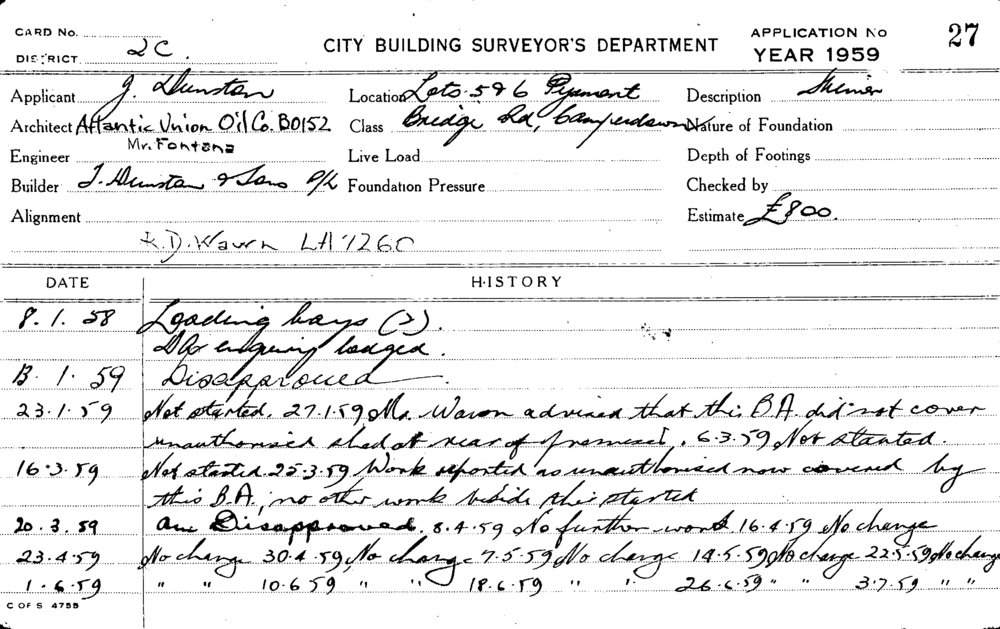 CARD No.
DISTRICT 2C.
CITY BUILDING SURVEYOR'S DEPARTMENT
APPLICATION No 27
YEAR 1959
Applicant J. Dunstan Location Lots 5 & 6 Pyrmont Description
Architect Atlantic Union Oil Co. B0152 Class Bridge Rd, Camperdown Nature of Foundation
Mr. Fontana
Engineer Live Load Depth of Footings
Builder J. Dunstan & Sons P/L Foundation Pressure Checked by
Alignment Estimate £800.
R.D. LA7260
DATE HISTORY
8.1.58 Loading bays (2).
DA enquiry lodged.
13.1.59 Disapproved.
23.1.59 Not started. 27.1.59 Mr. advised that this B.A. did not cover
unauthorised shed at rear of premises. 6.3.59 Not started.
16.3.59 Not started 25.3.59 Work reported as unauthorised now covered by
this B.A., no other work beside this started
20.3.59 Disapproved. 8.4.59 No further work 16.4.59 No change
23.4.59 No change 30.4.59, No change 7.5.59 No change 14.5.59 No change 22.5.59 No change
1.6.59 " " 10.6.59 " " 18.6.59 " " 26.6.59 " " 3.7.59 " "
C OF S 4755